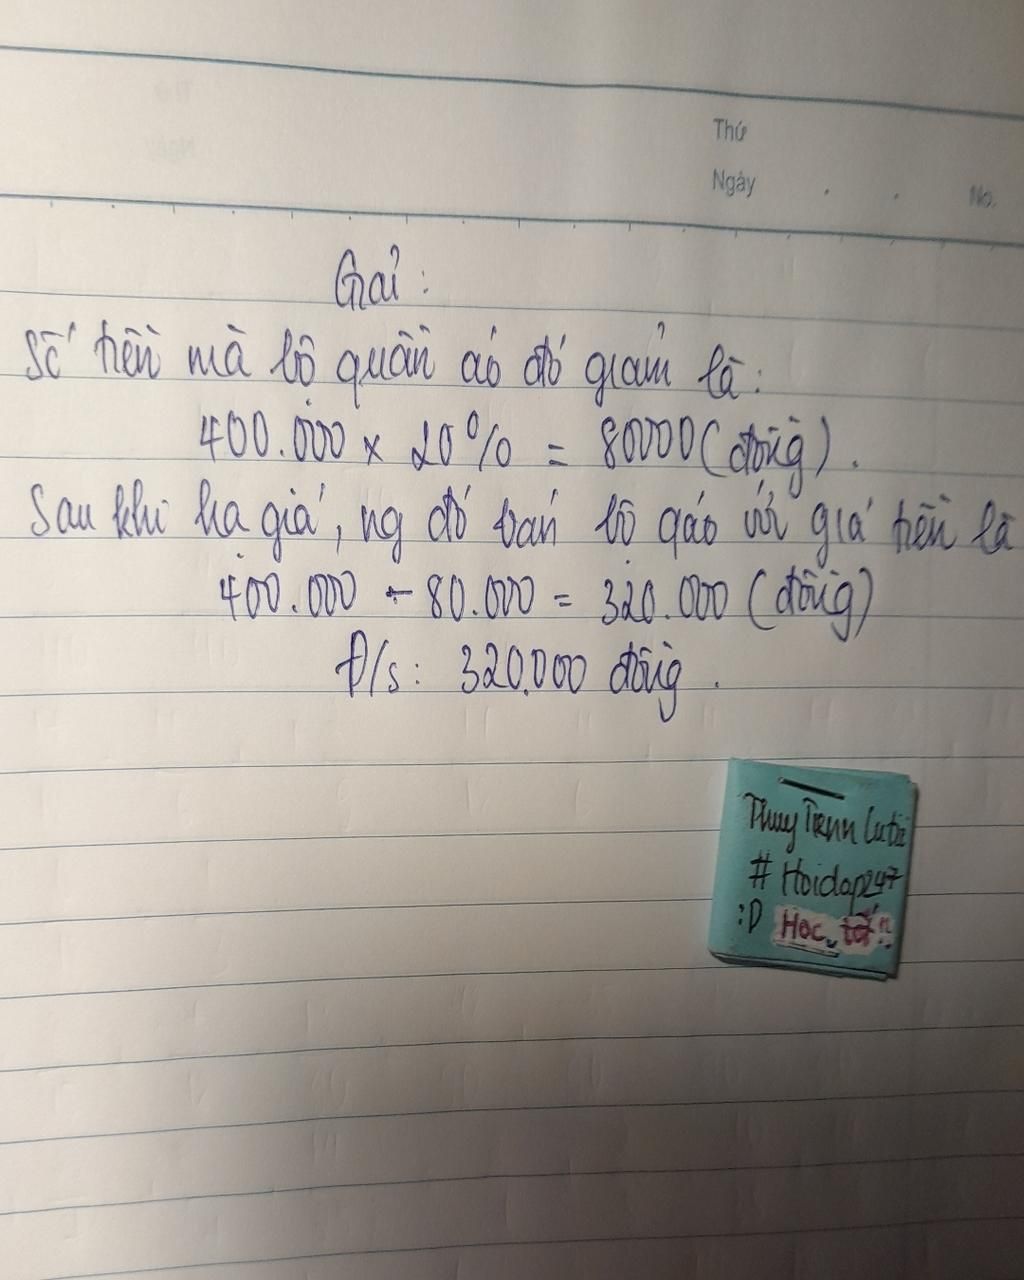 Thứ
Ngày . . No.
Giải:
Số tiền mà bộ quần áo đó giảm là:
400.000 x 20% = 80000 (đồng).
Sau khi hạ giá, ng đó bán bộ qáo với giá tiền là
400.000 - 80.000 = 320.000 (đồng)
Đ/s: 320.000 đồng.
Thuy Tienn Cutii
# Hoidap247
:D Học tốt